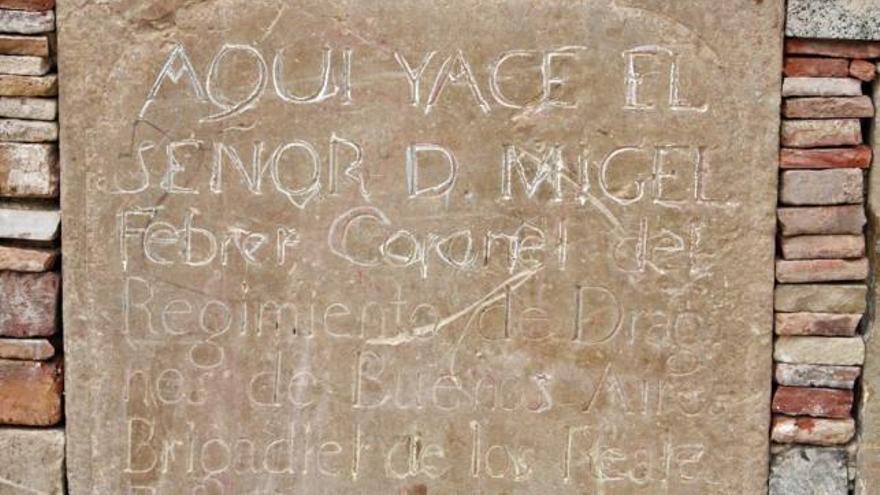 AQUI YACE EL
SEÑOR D MIGEL
Febrer Coronel del
Regimiento de Drago
nes de Buenos Aires
Brigadier de los Reale